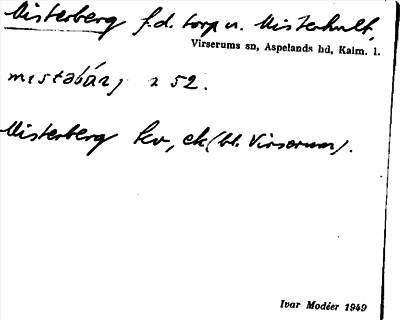 Misterberg f.d. torp u. Misterhult,
Virserums sn, Aspelands hd, Kalm. l.
mɩstəbárj s 52.
Misterberg kv, ek (bl. Virserum).
Ivar Modéer 1949